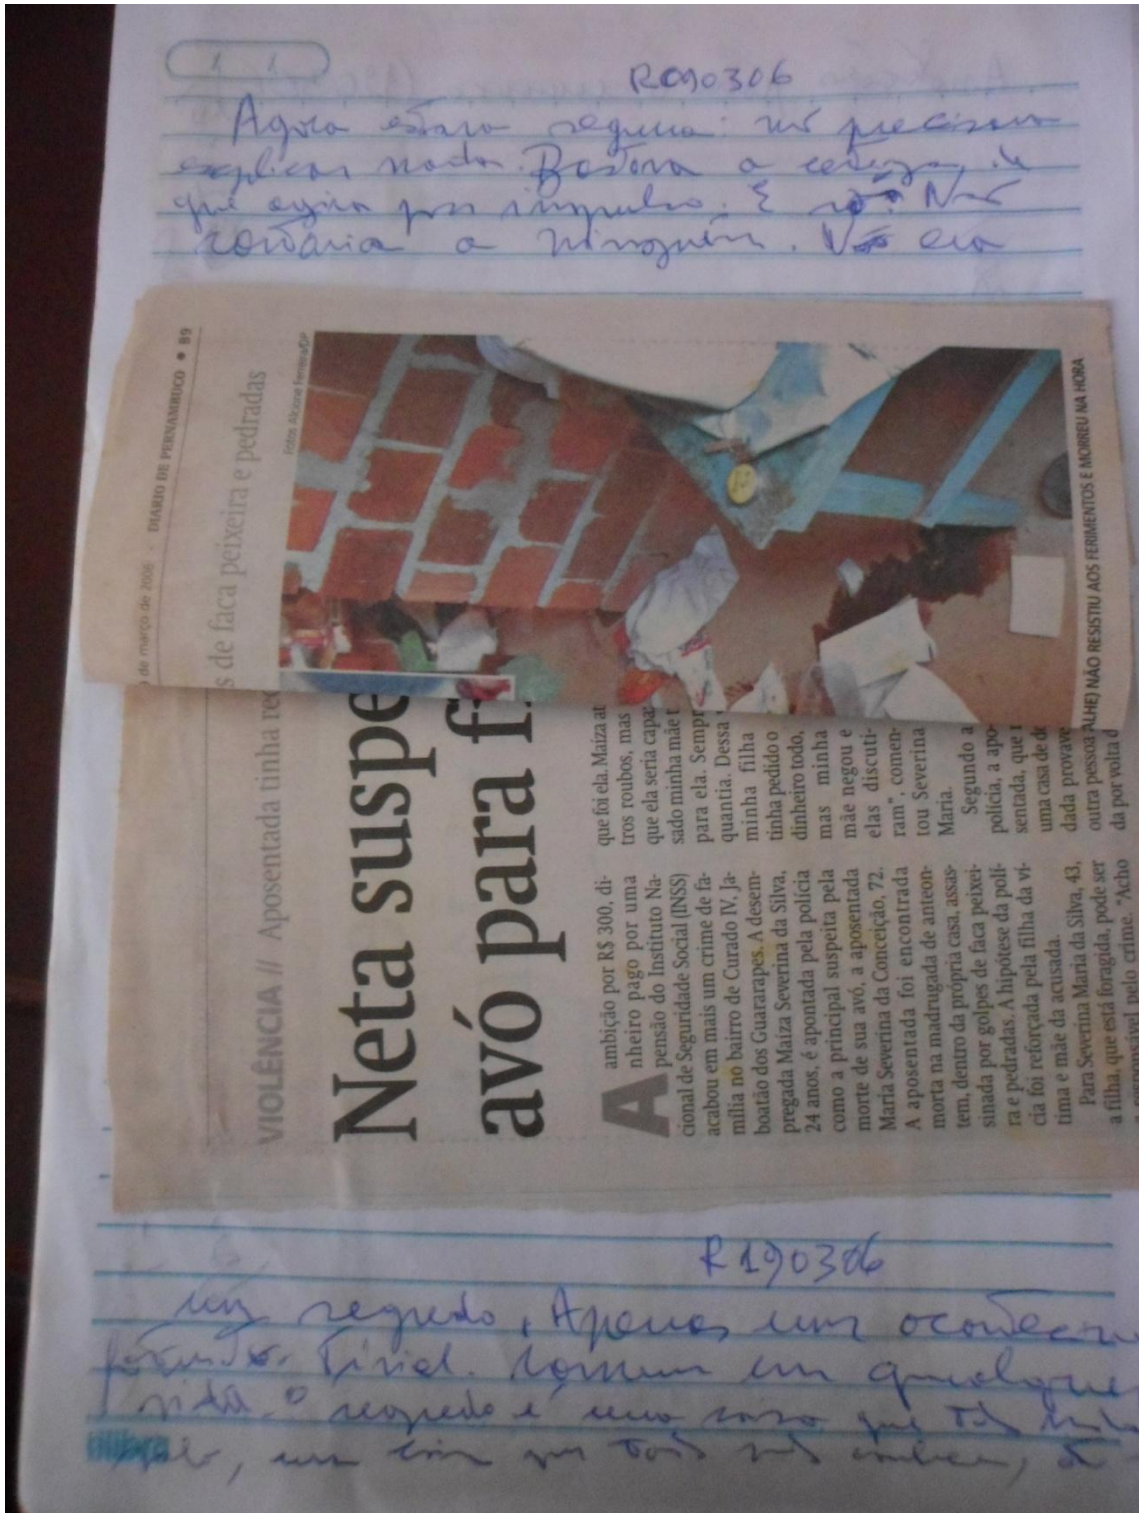 R090306
Agora estava segura: não precisava
explicar nada. Bastava a certeza de
que agira por impulso. E só. Não
contaria a ninguém. Não era
5 de março de 2006 • DIARIO DE PERNAMBUCO • B9
s de faca peixeira e pedradas
Fotos Alcione Ferreira/DP
ALHE) NÃO RESISTIU AOS FERIMENTOS E MORREU NA HORA
VIOLÊNCIA // Aposentada tinha re
Neta suspe
avó para f
A ambição por R$ 300, di-
nheiro pago por uma
pensão do Instituto Na-
cional de Seguridade Social (INSS)
acabou em mais um crime de fa-
mília no bairro de Curado IV, Ja-
boatão dos Guararapes. A desem-
pregada Maiza Severina da Silva,
24 anos, é apontada pela polícia
como a principal suspeita pela
morte de sua avó, a aposentada
Maria Severina da Conceição, 72.
A aposentada foi encontrada
morta na madrugada de anteon-
tem, dentro da própria casa, assas-
sinada por golpes de faca peixei-
ra e pedradas. A hipótese da polí-
cia foi reforçada pela filha da ví-
tima e mãe da acusada.
Para Severina Maria da Silva, 43,
a filha, que está foragida, pode ser
a responsável pelo crime. "Acho
que foi ela. Maiza at
tros roubos, mas
que ela seria capa
sado minha mãe t
para ela. Sempr
quantia. Dessa
minha filha
tinha pedido o
dinheiro todo,
mas minha
mãe negou e
elas discuti-
ram", comen-
tou Severina
Maria.
Segundo a
polícia, a apo-
sentada, que
uma casa de
dada prova
outra pessoa
da por volta d
R190306
um segredo. Apenas um acontecim
Trivial. Comum em qualquer
vida. O segredo é uma coisa que